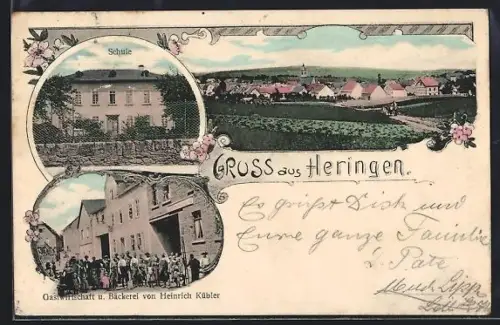 Schule
GRUSS aus Heringen.
Es grüßt Dich und
Eure ganze Familie
Pate
Gastwirtschaft u. Bäckerei von Heinrich Kübler